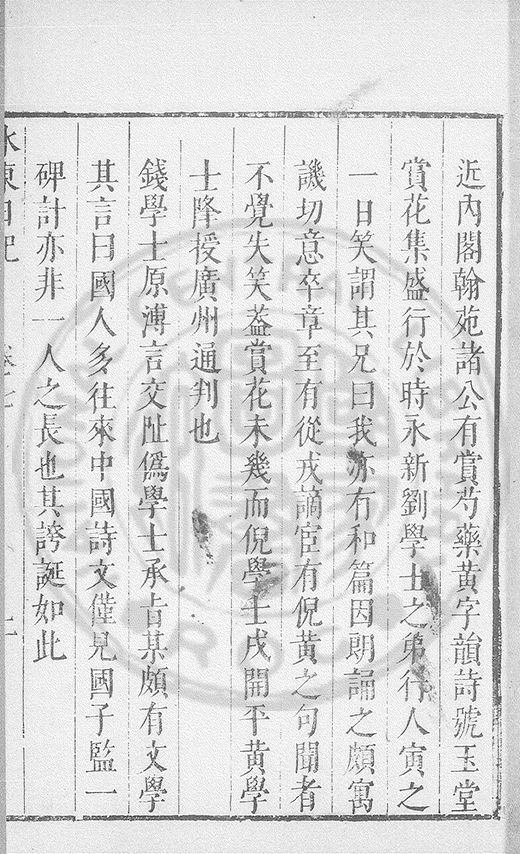 近內閣翰苑諸公有賞芍藥黃字韻詩號玉堂
賞花集盛行於時永新劉學士之弟行人寅之
一日笑謂其兄曰我亦有和篇因朗誦之頗寓
譏切意卒章至有從戎謫宦有倪黃之句聞者
不覺失笑葢賞花未幾而倪學士戍開平黃學
士降授廣州通判也
錢學士原溥言交阯僞學士承旨某頗有文學
其言曰國人多往來中國詩文僅見國子監一
碑計亦非一人之長也其誇誕如此
水東日記 卷七